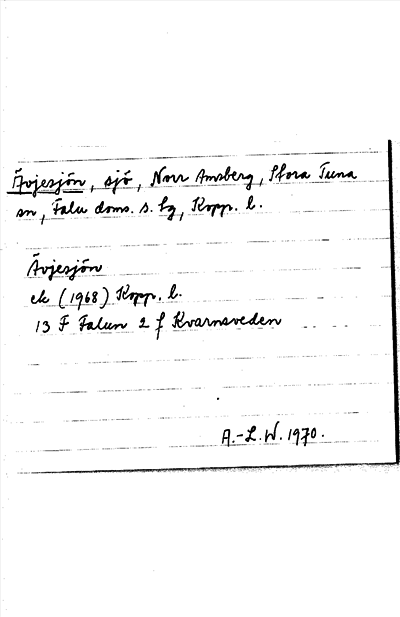 Ävjesjön, sjö, Norr Amsberg, Stora Tuna
sn, Falu doms. s. lg, Kopp. l.
Ävjesjön
ek (1968) Kopp. l.
13 F Falun 2 f Kvarnsveden
A.-L. W. 1970.